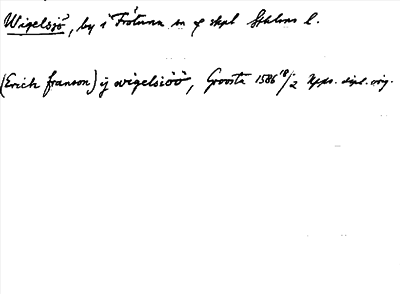 Wigelsjö, by i Frötuna sn o skpl Sthlms l.
(Erich franson) ij wigelsiöö, Groosta 1586 18/2 Upps. dipl. orig.